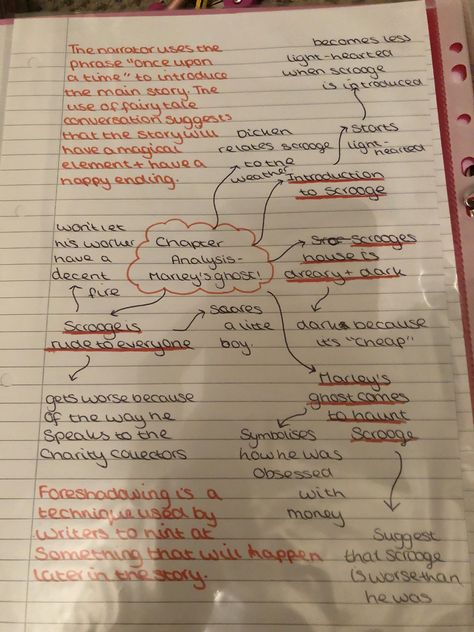 The narrator uses the
phrase "once upon
a time" to introduce
the main story. The
use of fairy tale
conversation suggests
that the story will
have a magical
element + have a
happy ending.
becomes less
light-hearted
when scrooge
is introduced
starts
light-hearted
Dicken
relates scrooge
to the
weather
Introduction
to scrooge
Chapter
Analysis-
Marley's ghost!
Scrooges
house is
dreary + dark
dark because
it's "cheap"
won't let
his worker
have a
decent
fire
Scrooge is
rude to everyone
Scares
a litte
boy.
gets worse because
of the way he
speaks to the
charity collectors
Marley's
ghost comes
to haunt
Scrooge
Symbolises
how he was
obsessed
with
money
Suggest
that scrooge
is worse than
he was
Foreshadowing is a
technique used by
writers to hint at
Something that will happen
later in the story.